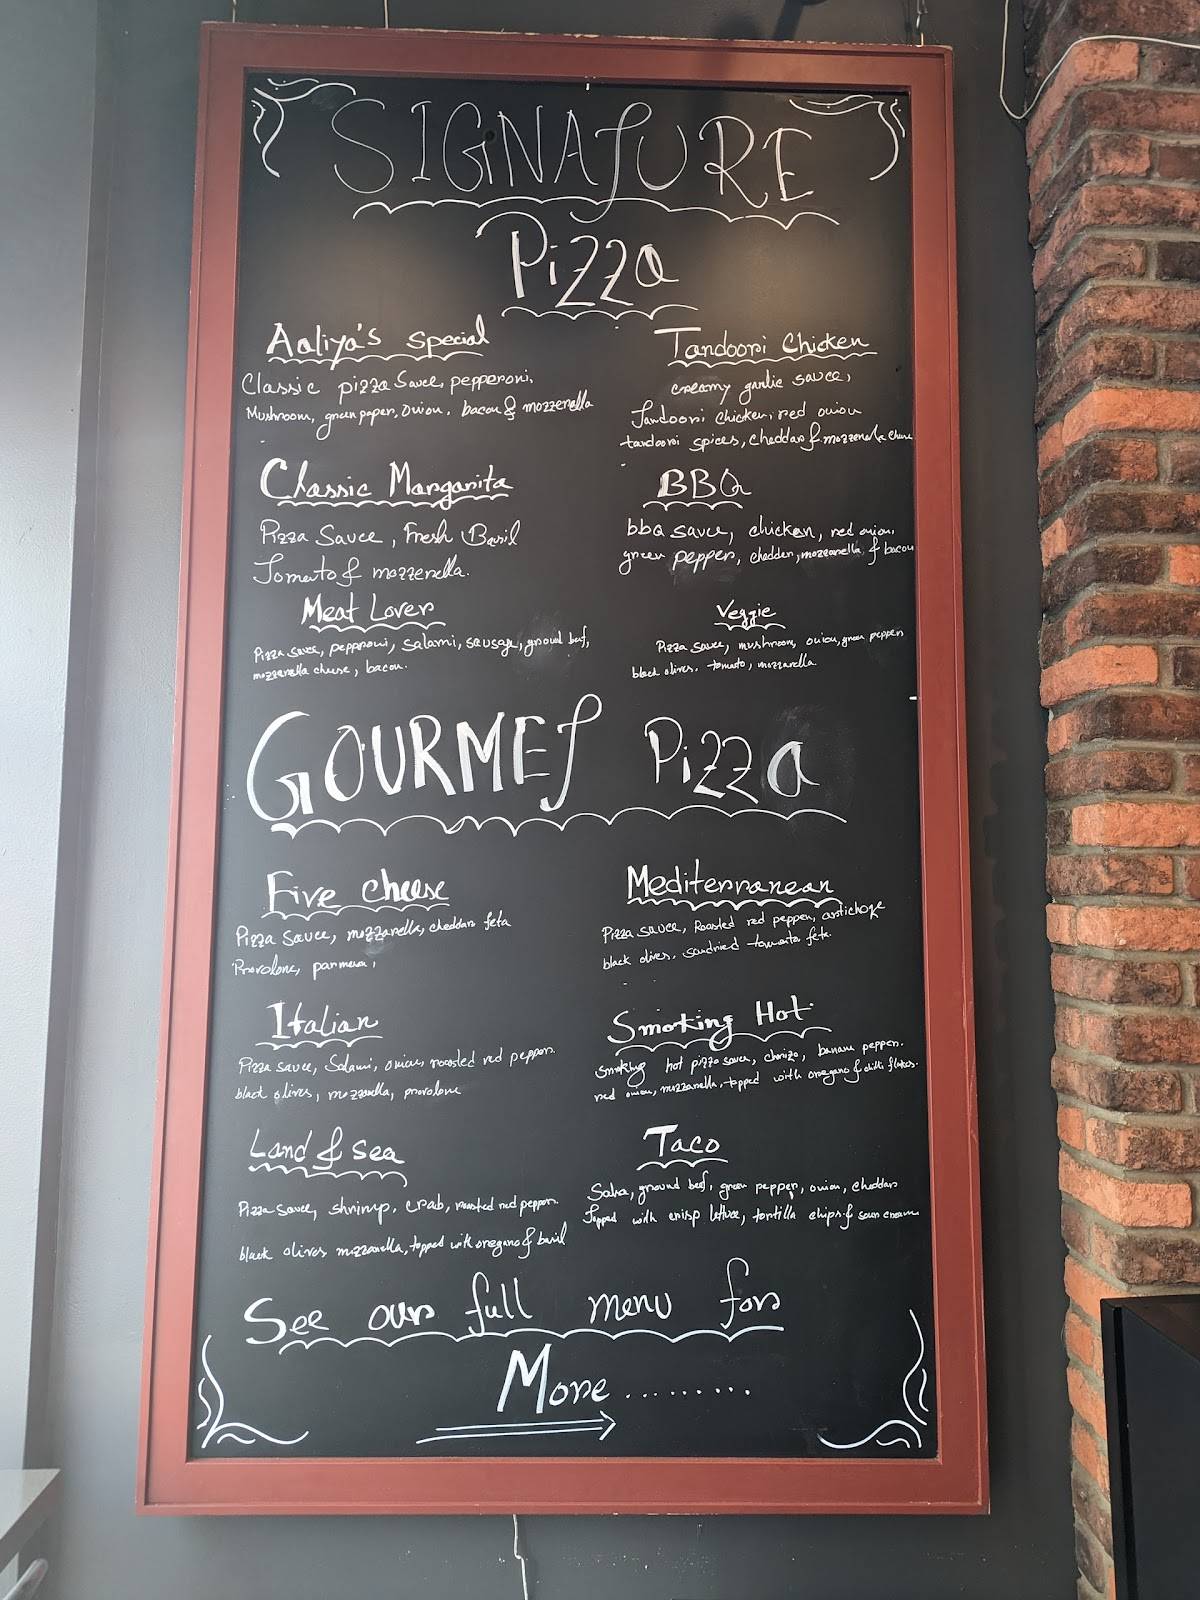 SIGNATURE
Pizza
Aaliya's special
Classic pizza Sauce, pepperoni,
Mushroom, green paper, onion, bacon & mozzerella
Classic Margarita
Pizza Sauce, Fresh Basil
Tomato & mozzerella.
Meat Lover
Pizza sauce, pepproni, salami, sausage, ground beef,
mozzarella cheese, bacon.
Tandoori Chicken
creamy garlic sauce,
Tandoori chicken, red onion
tandoori spices, cheddar & mozzerella cheese
BBQ
bbq sauce, chicken, red onion,
green pepper, chedder, mozzarella & bacon
Veggie
Pizza sauce, mushroom, onion, green pepper
black olives. tomato, mozzarella
GOURMET Pizza
Five cheese
Pizza sauce, mozzarella, cheddar feta
Provolone, parmesan,
Italian
Pizza sauce, Salami, onion, roasted red pepper.
black olives, mozzarella, provolone
Land & sea
Pizza sauce, shrimp, crab, roasted red pepper.
black olives mozzarella, topped with oregano & basil
Mediterranean
Pizza sauce, Roasted red pepper, artichoke
black olives. sundried tomato feta.
Smoking Hot
smoking hot pizza sauce, chorizo, banana pepper.
red onion, mozzarella. topped with oregano & chilli flakes.
Taco
Salsa, ground beef, green pepper, onion, cheddar
Topped with crisp lettuce, tortilla chips & sour cream
See our full menu for
More .........